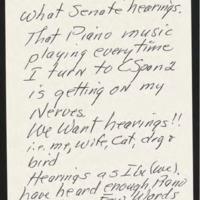 What Senate hearings.
That Piano music
playing everytime
I turn to CSpan2
is getting on my
Nerves.
We Want hearings!!
i.e. me, wife, Cat, dog &
bird
Hearings as I be (we),
have heard enough, Piano
Few Words